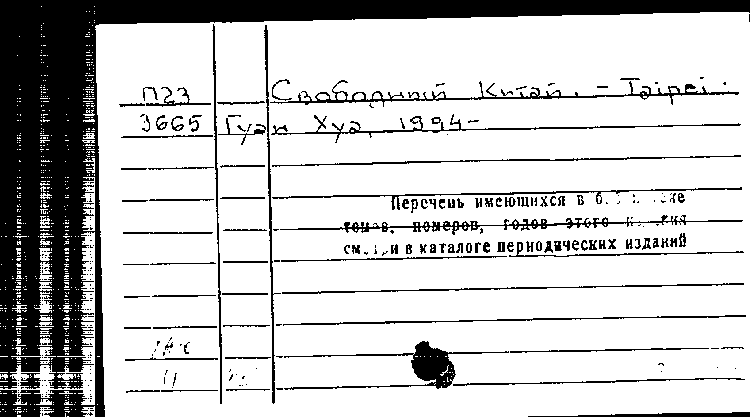 П23 Свободный Китай. – Taipei:
3665 Гуан Хуа, 1994–
Перечень имеющихся в
томов, номеров, годов этого
смотри в каталоге периодических изданий